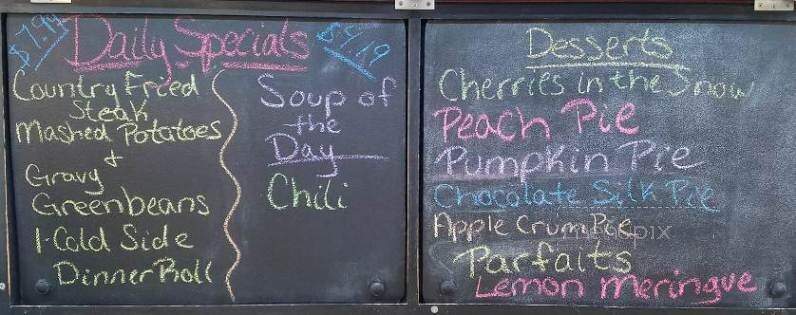 $7.99 Daily Specials $4.19
Country Fried
Steak
Mashed Potatoes
+
Gravy
Greenbeans
1-Cold Side
Dinner Roll
Soup of
the
Day
Chili
Desserts
Cherries in the Snow
Peach Pie
Pumpkin Pie
Chocolate Silk Pie
Apple Crum Pie
Parfaits
Lemon Meringue